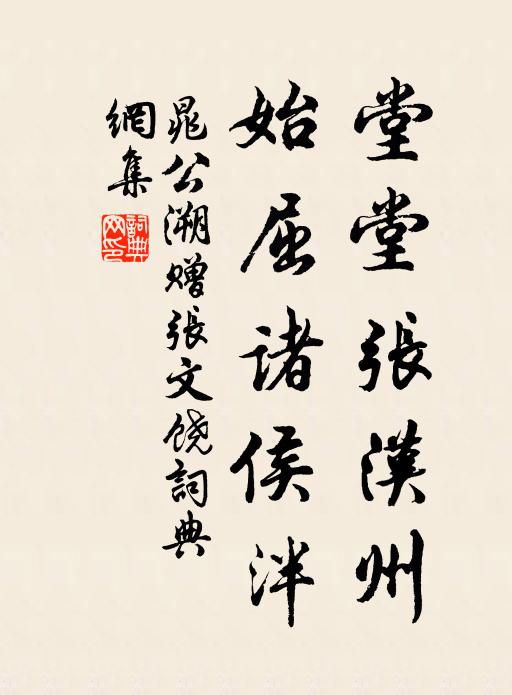 堂堂張漢州
始屈諸侯泮
晁公溯贈張文饶詞典
網集
詞典網印